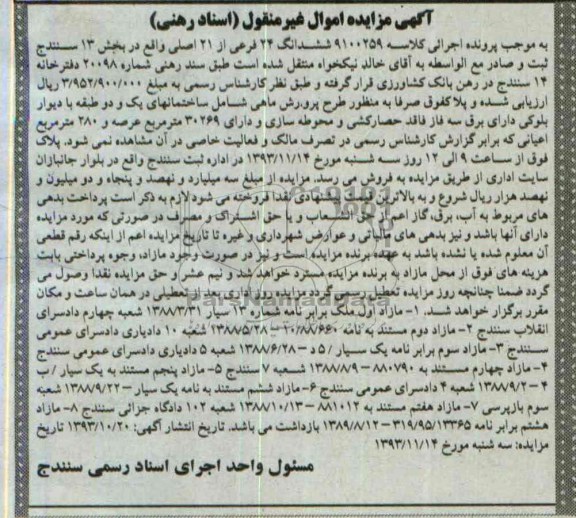 آگهی مزایده اموال غیرمنقول (اسناد رهنی)
به موجب پرونده اجرائی کلاسه ۹۱۰۰۲۵۹ ششدانگ ۲۴ فرعی از ۲۱ اصلی واقع در بخش ۱۳ سنندج
ثبت و صادر مع الواسطه به آقای خالد نیکخواه منتقل شده است طبق سند رهنی شماره ۲۰۰۹۸ دفترخانه
۱۴ سنندج در رهن بانک کشاورزی قرار گرفته و طبق نظر کارشناس رسمی به مبلغ ۳/۹۵۲/۹۰۰/۰۰۰ ریال
ارزیابی شده و پلاکفوق صرفا به منظور طرح پرورش ماهی شامل ساختمانهای یک و دو طبقه با دیوار
بلوکی دارای برق سه فاز فاقد حصارکشی و محوطه سازی و دارای ۳۰۲۶۹ مترمربع عرصه و ۲۸۰ مترمربع
اعیانی که برابر گزارش کارشناس رسمی در تصرف مالک و فعالیت خاصی در آن مشاهده نمی شود. پلاک
فوق از ساعت ۹ الی ۱۲ روز سه شنبه مورخ ۱۳۹۳/۱۱/۱۴ در اداره ثبت سنندج واقع در بلوار جانبازان
سایت اداری از طریق مزایده به فروش می رسد. مزایده از مبلغ سه میلیارد و نهصد و پنجاه و دو میلیون و
نهصد هزار ریال شروع و به بالاترین قیمت پیشنهادی نقدا فروخته می شود لازم به ذکر است پرداخت بدهی
های مربوط به آب، برق، گاز اعم از حق انشعاب و یا حق اشتراک و مصرف در صورتی که مورد مزایده
دارای آنها باشد و نیز بدهی های مالیاتی و عوارض شهرداری و غیره تا تاریخ مزایده اعم از اینکه رقم قطعی
آن معلوم شده یا نشده باشد به عهده برنده مزایده است و نیز در صورت وجود مازاد، وجوه پرداختی بابت
هزینه های فوق از محل مازاد به برنده مزایده مسترد خواهد شد و نیم عشر و حق مزایده نقدا وصول می
گردد ضمنا چنانچه روز مزایده تعطیل رسمی گردد مزایده روز اداری بعد از تعطیلی در همان ساعت و مکان
مقرر برگزار خواهد شد. ۱- مازاد اول ملک برابر نامه شماره ۱۳ سیار ۱۳۸۸/۳/۳۱ شعبه چهارم دادسرای
انقلاب سنندج ۲- مازاد دوم مستند به نامه ۲۰/۸۸/۶۶۰-۱۳۸۸/۵/۲۸ شعبه ۱۰ دادیاری دادسرای عمومی
سنندج ۳- مازاد سوم برابر نامه یک سیار / ۵ د - ۱۳۸۸/۶/۲۸ شعبه ۵ دادیاری دادسرای عمومی سنندج
۴- مازاد چهارم مستند به ۸۸۰۷۹۰ - ۱۳۸۸/۸/۹ شعبه ۷ سنندج ۵- مازاد پنجم مستند به یک سیار / ب
۴ - ۱۳۸۸/۹/۲ شعبه ۴ دادسرای عمومی سنندج ۶- مازاد ششم مستند به نامه یک سیار - ۱۳۸۸/۹/۲۲ شعبه
سوم بازپرسی ۷- مازاد هفتم مستند به ۸۸۱۰۱۲ - ۱۳۸۸/۱۰/۱۳ شعبه ۱۰۲ دادگاه جزائی سنندج ۸- مازاد
هشتم برابر نامه ۳۱۹/۹۵/۱۳۳۶۵ - ۱۳۸۹/۸/۱۲ بازداشت می باشد. تاریخ انتشار آگهی: ۱۳۹۳/۱۰/۲۰ تاریخ
مزایده: سه شنبه مورخ ۱۳۹۳/۱۱/۱۴
مسئول واحد اجرای اسناد رسمی سنندج